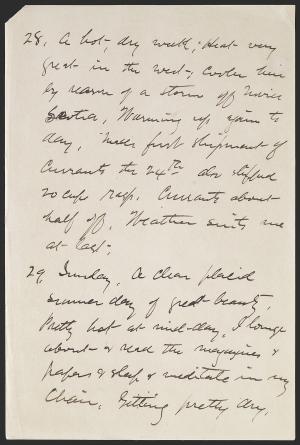 28. A hot, dry week; Heat very
great in the west, cooler here
by reason of a storm off Nova
Scotia, Warming up again to
day, Made first shipment of
Currants the 24th also shipped
20 cups rasp. Currants about
half off. Weather suits me
at last;
29 Sunday, A clear placid
summer day of great beauty,
Pretty hot at mid-day, I lounge
about & read the magazines &
papers & sleep & meditate in my
Chair, Getting pretty dry,